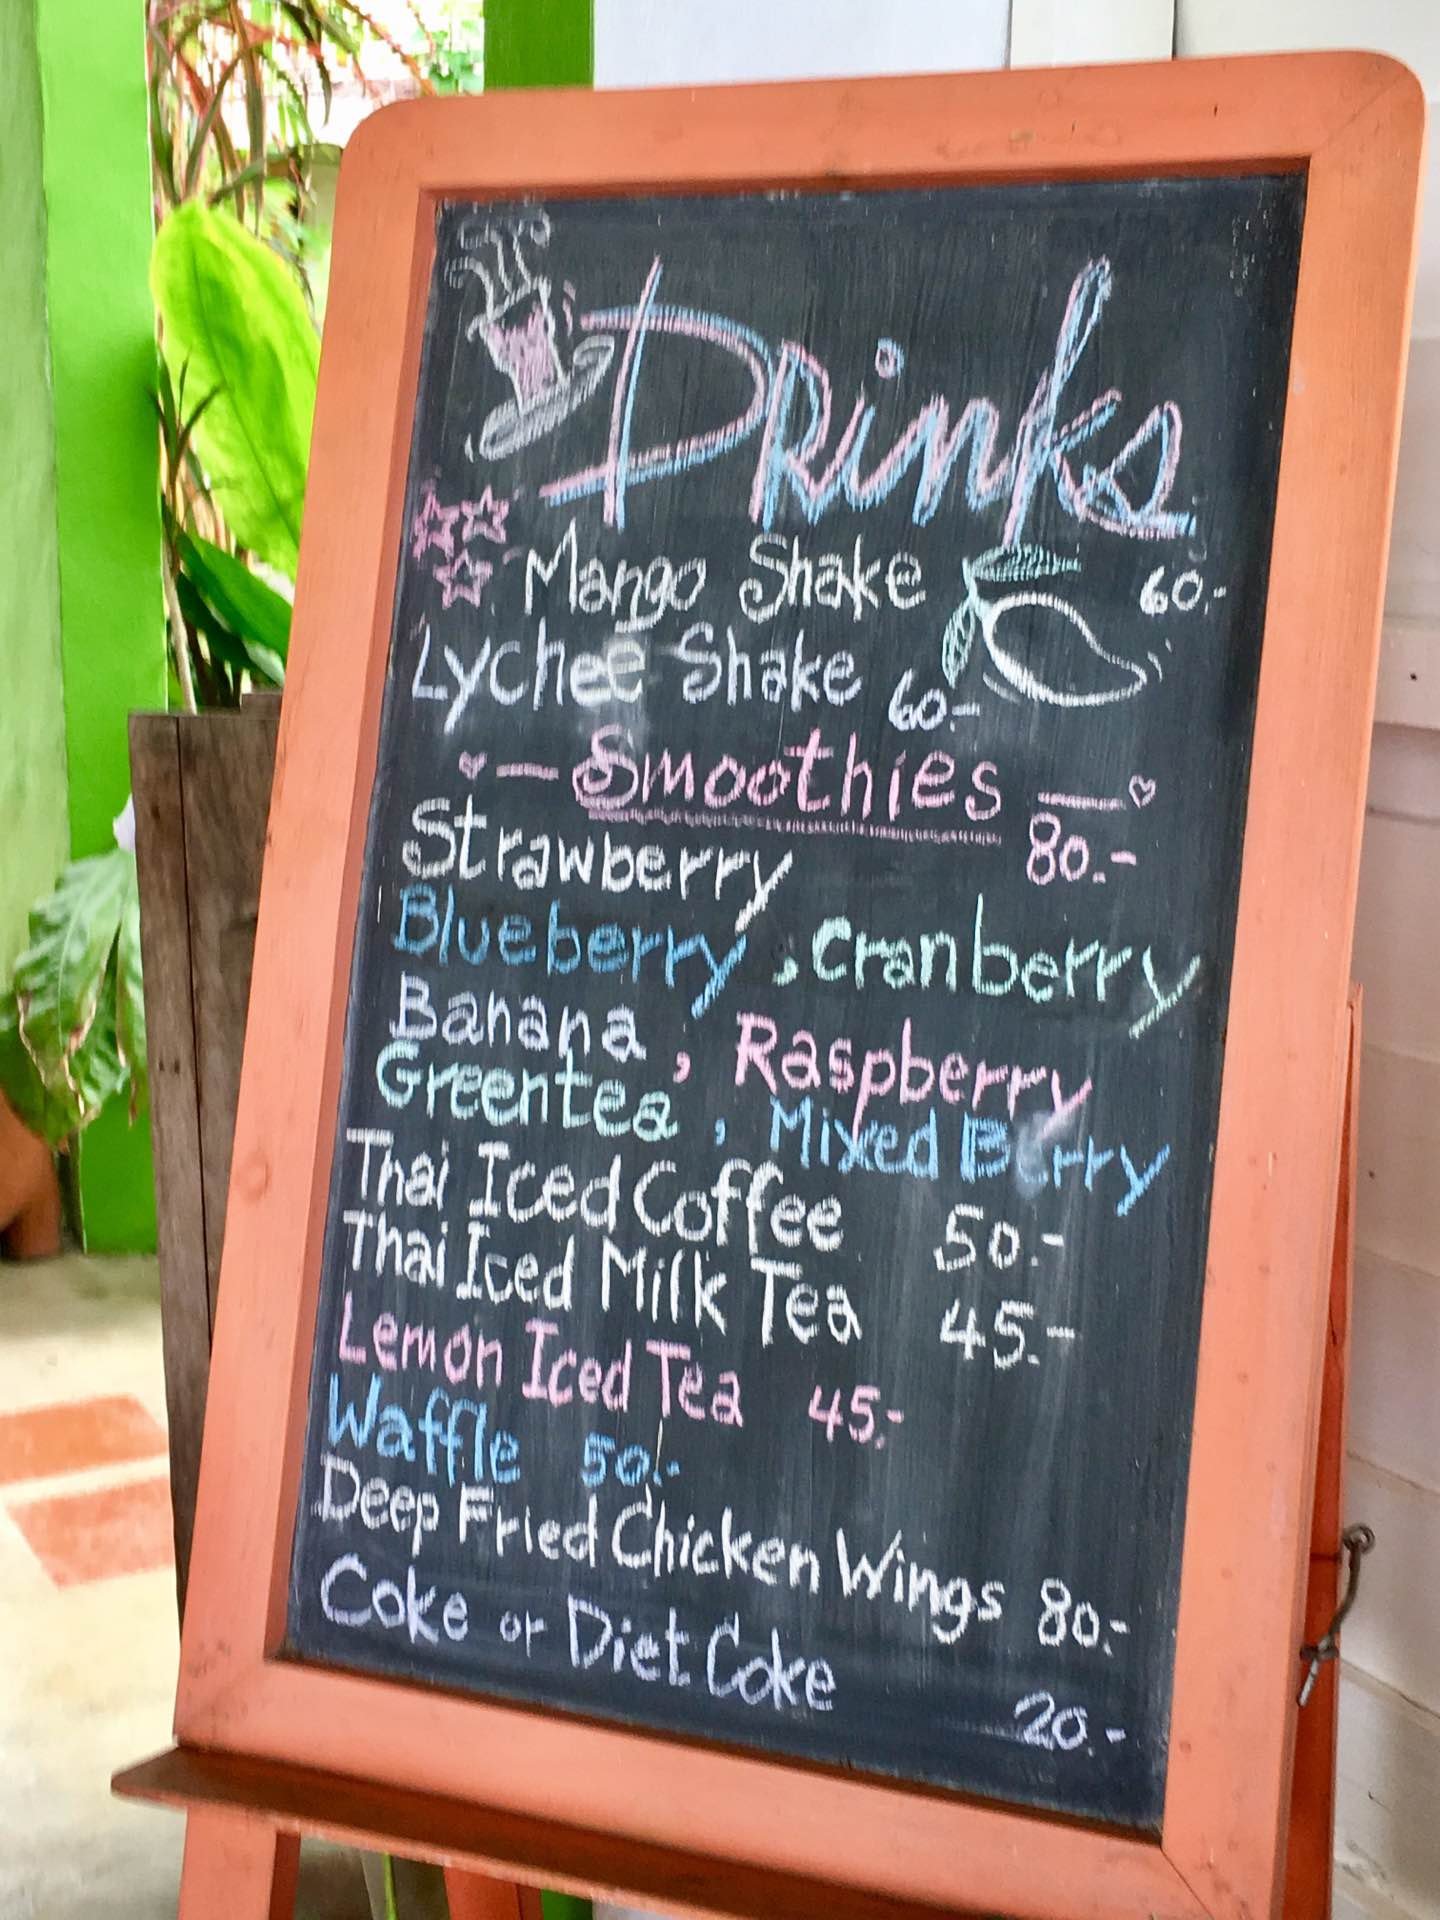 Drinks
Mango Shake 60.-
Lychee Shake 60.-
Smoothies
Strawberry 80.-
Blueberry, Cranberry
Banana, Raspberry
Greentea, Mixed Berry
Thai Iced Coffee 50.-
Thai Iced Milk Tea 45.-
Lemon Iced Tea 45.-
Waffle 50.-
Deep Fried Chicken Wings 80.-
Coke or Diet Coke
20.-